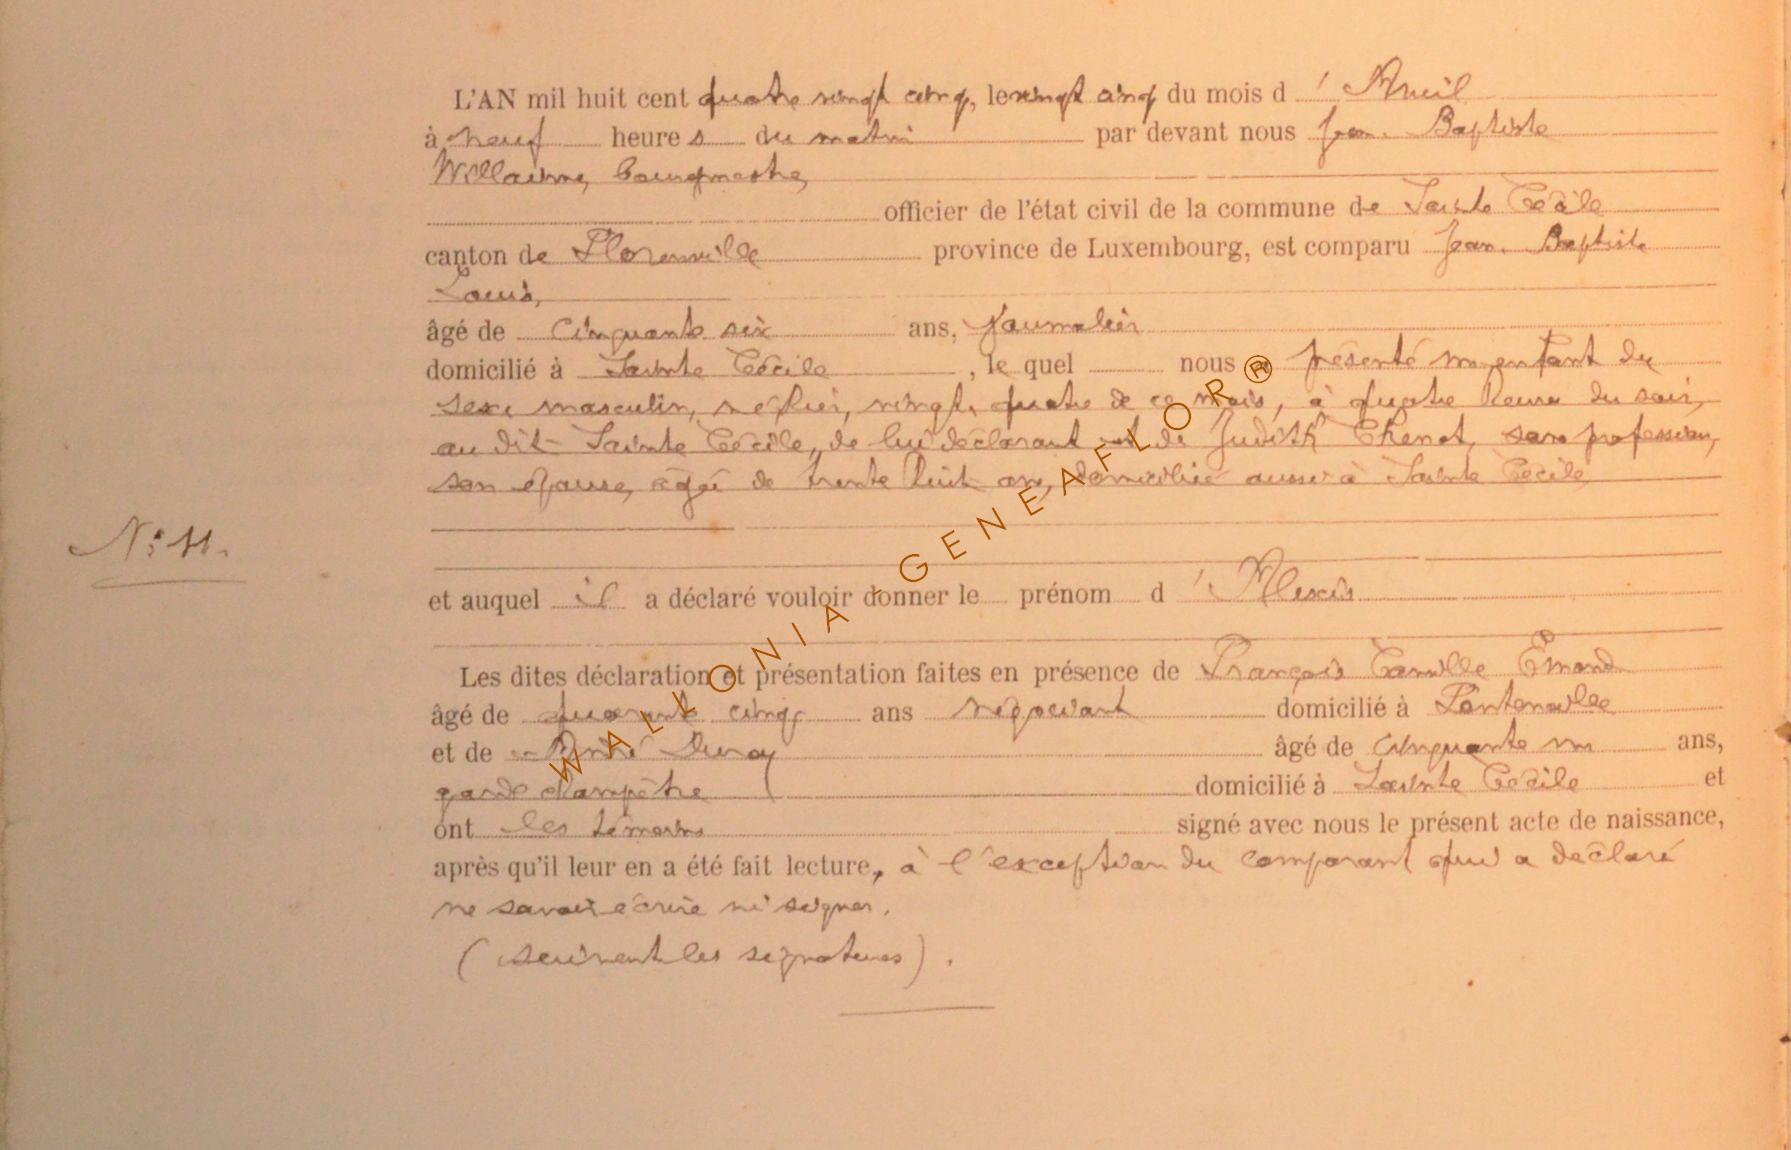 L'AN mil huit cent quatre vingt cinq, le vingt cinq du mois d ' Avril
à neuf heure s du matin par devant nous Jean Baptiste
Willaime, bourgmestre,
officier de l'état civil de la commune de Sainte Cécile
canton de Florenville province de Luxembourg, est comparu Jean Baptiste
Louis,
âgé de cinquante six ans, journalier
domicilié à Sainte Cécile, le quel nous a présenté un enfant du
sexe masculin, né hier, vingt quatre de ce mois, à quatre heures du soir,
au dit Sainte Cécile, de lui déclarant et de Judith Thenot, sans profession,
son épouse, âgée de trente huit ans, domiciliée aussi à Sainte Cécile
N° 11.
et auquel il a déclaré vouloir donner le prénom d ' Alexis
Les dites déclaration et présentation faites en présence de François Camille Emond
âgé de quarante cinq ans négociant domicilié à Fontenoille
et de André âgé de cinquante un ans,
garde champêtre domicilié à Sainte Cécile et
ont les témoins signé avec nous le présent acte de naissance,
après qu'il leur en a été fait lecture, à l'exception du comparant qui a déclaré
ne savoir écrire ni signer.
(suivent les signatures).
WALLONIA GENEAFLOR®